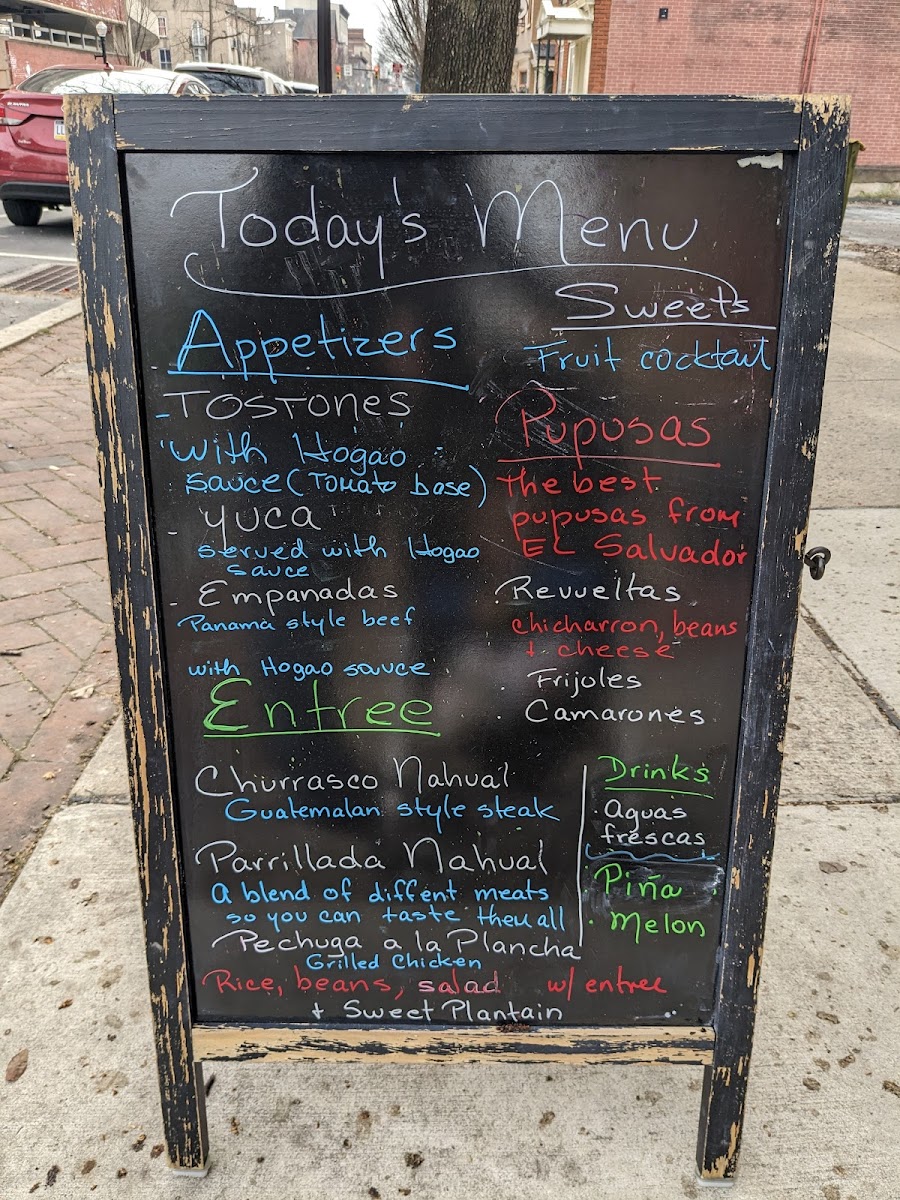 Today's Menu
Appetizers
- TOSTONES
with Hogao
sauce (Tomato base)
- Yuca
served with Hogao
sauce
- Empanadas
Panama style beef
with Hogao sauce
Entree
Churrasco Nahual
Guatemalan style steak
Parrillada Nahual
A blend of diffent meats
so you can taste theu all
Pechuga a la Plancha
Grilled Chicken
Rice, beans, salad w/ entree
+ Sweet Plantain
Sweets
Fruit cocktail
Pupusas
The best
pupusas from
EL Salvador
. Revueltas
chicharron, beans
+ cheese
. Frijoles
. Camarones
Drinks
Aguas
frescas
. Piña
. Melon